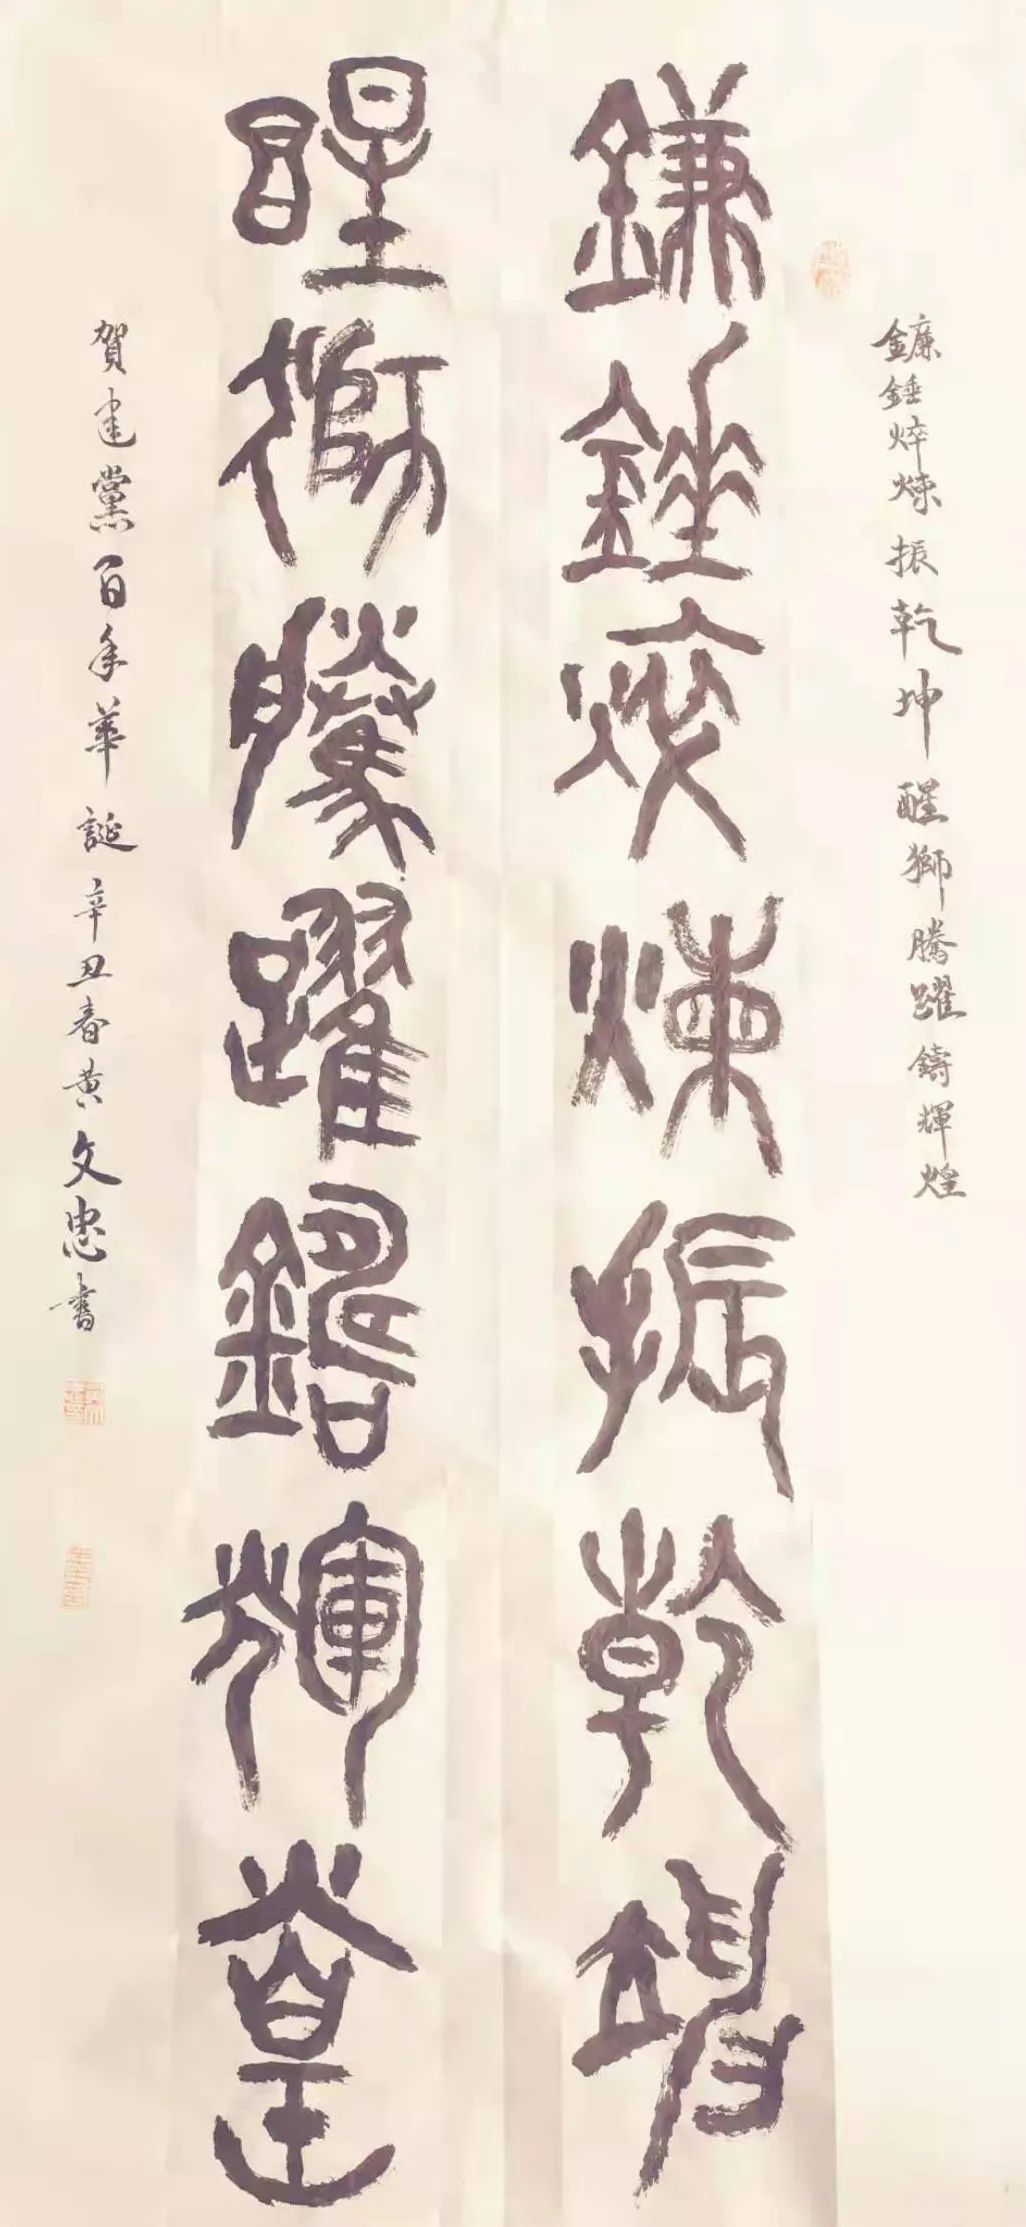 鐮錘焠煉振乾坤醒獅騰躍鑄輝煌
鐮錘焠煉振乾坤
醒獅騰躍鑄輝煌
賀建黨百年華誕辛丑春黄文忠書